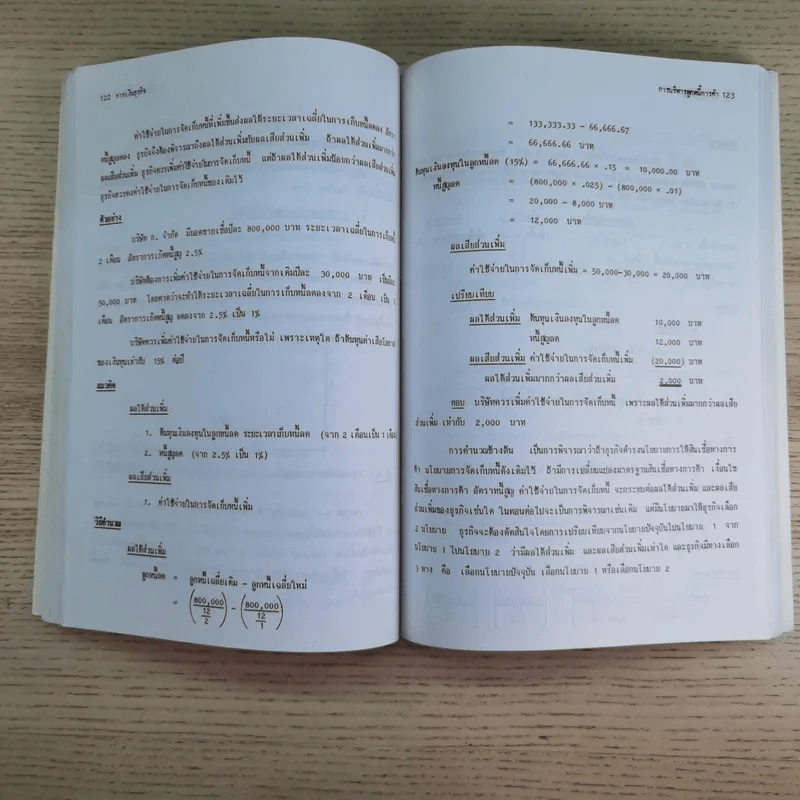 122 การเงินธุรกิจ
ค่าใช้จ่ายในการจัดเก็บหนี้ที่เพิ่มขึ้นส่งผลให้ระยะเวลาเฉลี่ยในการเก็บหนี้ลดลง อัตรา
หนี้สูญลดลง ธุรกิจจึงต้องพิจารณาถึงผลได้ส่วนเพิ่มกับผลเสียส่วนเพิ่ม ถ้าผลได้ส่วนเพิ่มมากกว่า
ผลเสียส่วนเพิ่ม ธุรกิจควรเพิ่มค่าใช้จ่ายในการจัดเก็บหนี้ แต่ถ้าผลได้ส่วนเพิ่มน้อยกว่าผลเสียส่วนเพิ่ม
ธุรกิจควรคงค่าใช้จ่ายในการจัดเก็บหนี้ของเดิมไว้
ตัวอย่าง
บริษัท ก. จำกัด มียอดขายเชื่อปีละ 800,000 บาท ระยะเวลาเฉลี่ยในการเก็บหนี้
2 เดือน อัตราการเกิดหนี้สูญ 2.5%
บริษัทต้องการเพิ่มค่าใช้จ่ายในการจัดเก็บหนี้จากเดิมปีละ 30,000 บาท เป็นปีละ
50,000 บาท โดยคาดว่าจะทำให้ระยะเวลาเฉลี่ยในการเก็บหนี้ลดลงจาก 2 เดือน เป็น 1
เดือน อัตราการเกิดหนี้สูญ ลดลงจาก 2.5% เป็น 1%
บริษัทควรเพิ่มค่าใช้จ่ายในการจัดเก็บหนี้หรือไม่ เพราะเหตุใด ถ้าต้นทุนค่าเสียโอกาส
ของเงินทุนเท่ากับ 15% ต่อปี
แนวคิด
ผลได้ส่วนเพิ่ม
1. ต้นทุนเงินลงทุนในลูกหนี้ลด ระยะเวลาเก็บหนี้ลด (จาก 2 เดือนเป็น 1 เดือน
2. หนี้สูญลด (จาก 2.5% เป็น 1%)
ผลเสียส่วนเพิ่ม
1. ค่าใช้จ่ายในการจัดเก็บหนี้เพิ่ม
วิธีคำนวณ
ผลได้ส่วนเพิ่ม
ลูกหนี้ลด = ลูกหนี้เฉลี่ยเดิม - ลูกหนี้เฉลี่ยใหม่
= (800,000 / 12/2) - (800,000 / 12/1)
การบริหารลูกหนี้การค้า 123
= 133,333.33 - 66,666.67
= 66,666.66 บาท
ต้นทุนเงินลงทุนในลูกหนี้ลด (15%) = 66,666.66 × .15 = 10,000.00 บาท
หนี้สูญลด = (800,000 × .025) - (800,000 × .01)
= 20,000 - 8,000 บาท
= 12,000 บาท
ผลเสียส่วนเพิ่ม
ค่าใช้จ่ายในการจัดเก็บหนี้เพิ่ม = 50,000-30,000 = 20,000 บาท
เปรียบเทียบ
ผลได้ส่วนเพิ่ม ต้นทุนเงินลงทุนในลูกหนี้ลด 10,000 บาท
หนี้สูญลด 12,000 บาท
ผลเสียส่วนเพิ่ม ค่าใช้จ่ายในการจัดเก็บหนี้เพิ่ม (20,000) บาท
ผลได้ส่วนเพิ่มมากกว่าผลเสียส่วนเพิ่ม 2,000 บาท
ตอบ บริษัทควรเพิ่มค่าใช้จ่ายในการจัดเก็บหนี้ เพราะผลได้ส่วนเพิ่มมากกว่าผลเสีย
ส่วนเพิ่ม เท่ากับ 2,000 บาท
การคำนวณข้างต้น เป็นการพิจารณาว่าถ้าธุรกิจดำรงนโยบายการให้สินเชื่อทางการ
ค้า นโยบายการจัดเก็บหนี้ดังเดิมไว้ ถ้ามีการเปลี่ยนแปลงมาตรฐานสินเชื่อทางการค้า เงื่อนไข
สินเชื่อทางการค้า อัตราหนี้สูญ ค่าใช้จ่ายในการจัดเก็บหนี้ จะกระทบต่อผลได้ส่วนเพิ่ม และผลเสีย
ส่วนเพิ่มของธุรกิจเช่นใด ในตอนต่อไปจะเป็นการพิจารณาเช่นเดิม แต่มีนโยบายมาให้ธุรกิจเลือก
2 นโยบาย ธุรกิจจะต้องตัดสินใจโดยการเปรียบเทียบจากนโยบายปัจจุบันไปนโยบาย 1 จาก
นโยบาย 1 ไปนโยบาย 2 ว่ามีผลได้ส่วนเพิ่ม และผลเสียส่วนเพิ่มเท่าใด และธุรกิจมีทางเลือก
3 ทาง คือ เลือกนโยบายปัจจุบัน เลือกนโยบาย 1 หรือเลือกนโยบาย 2